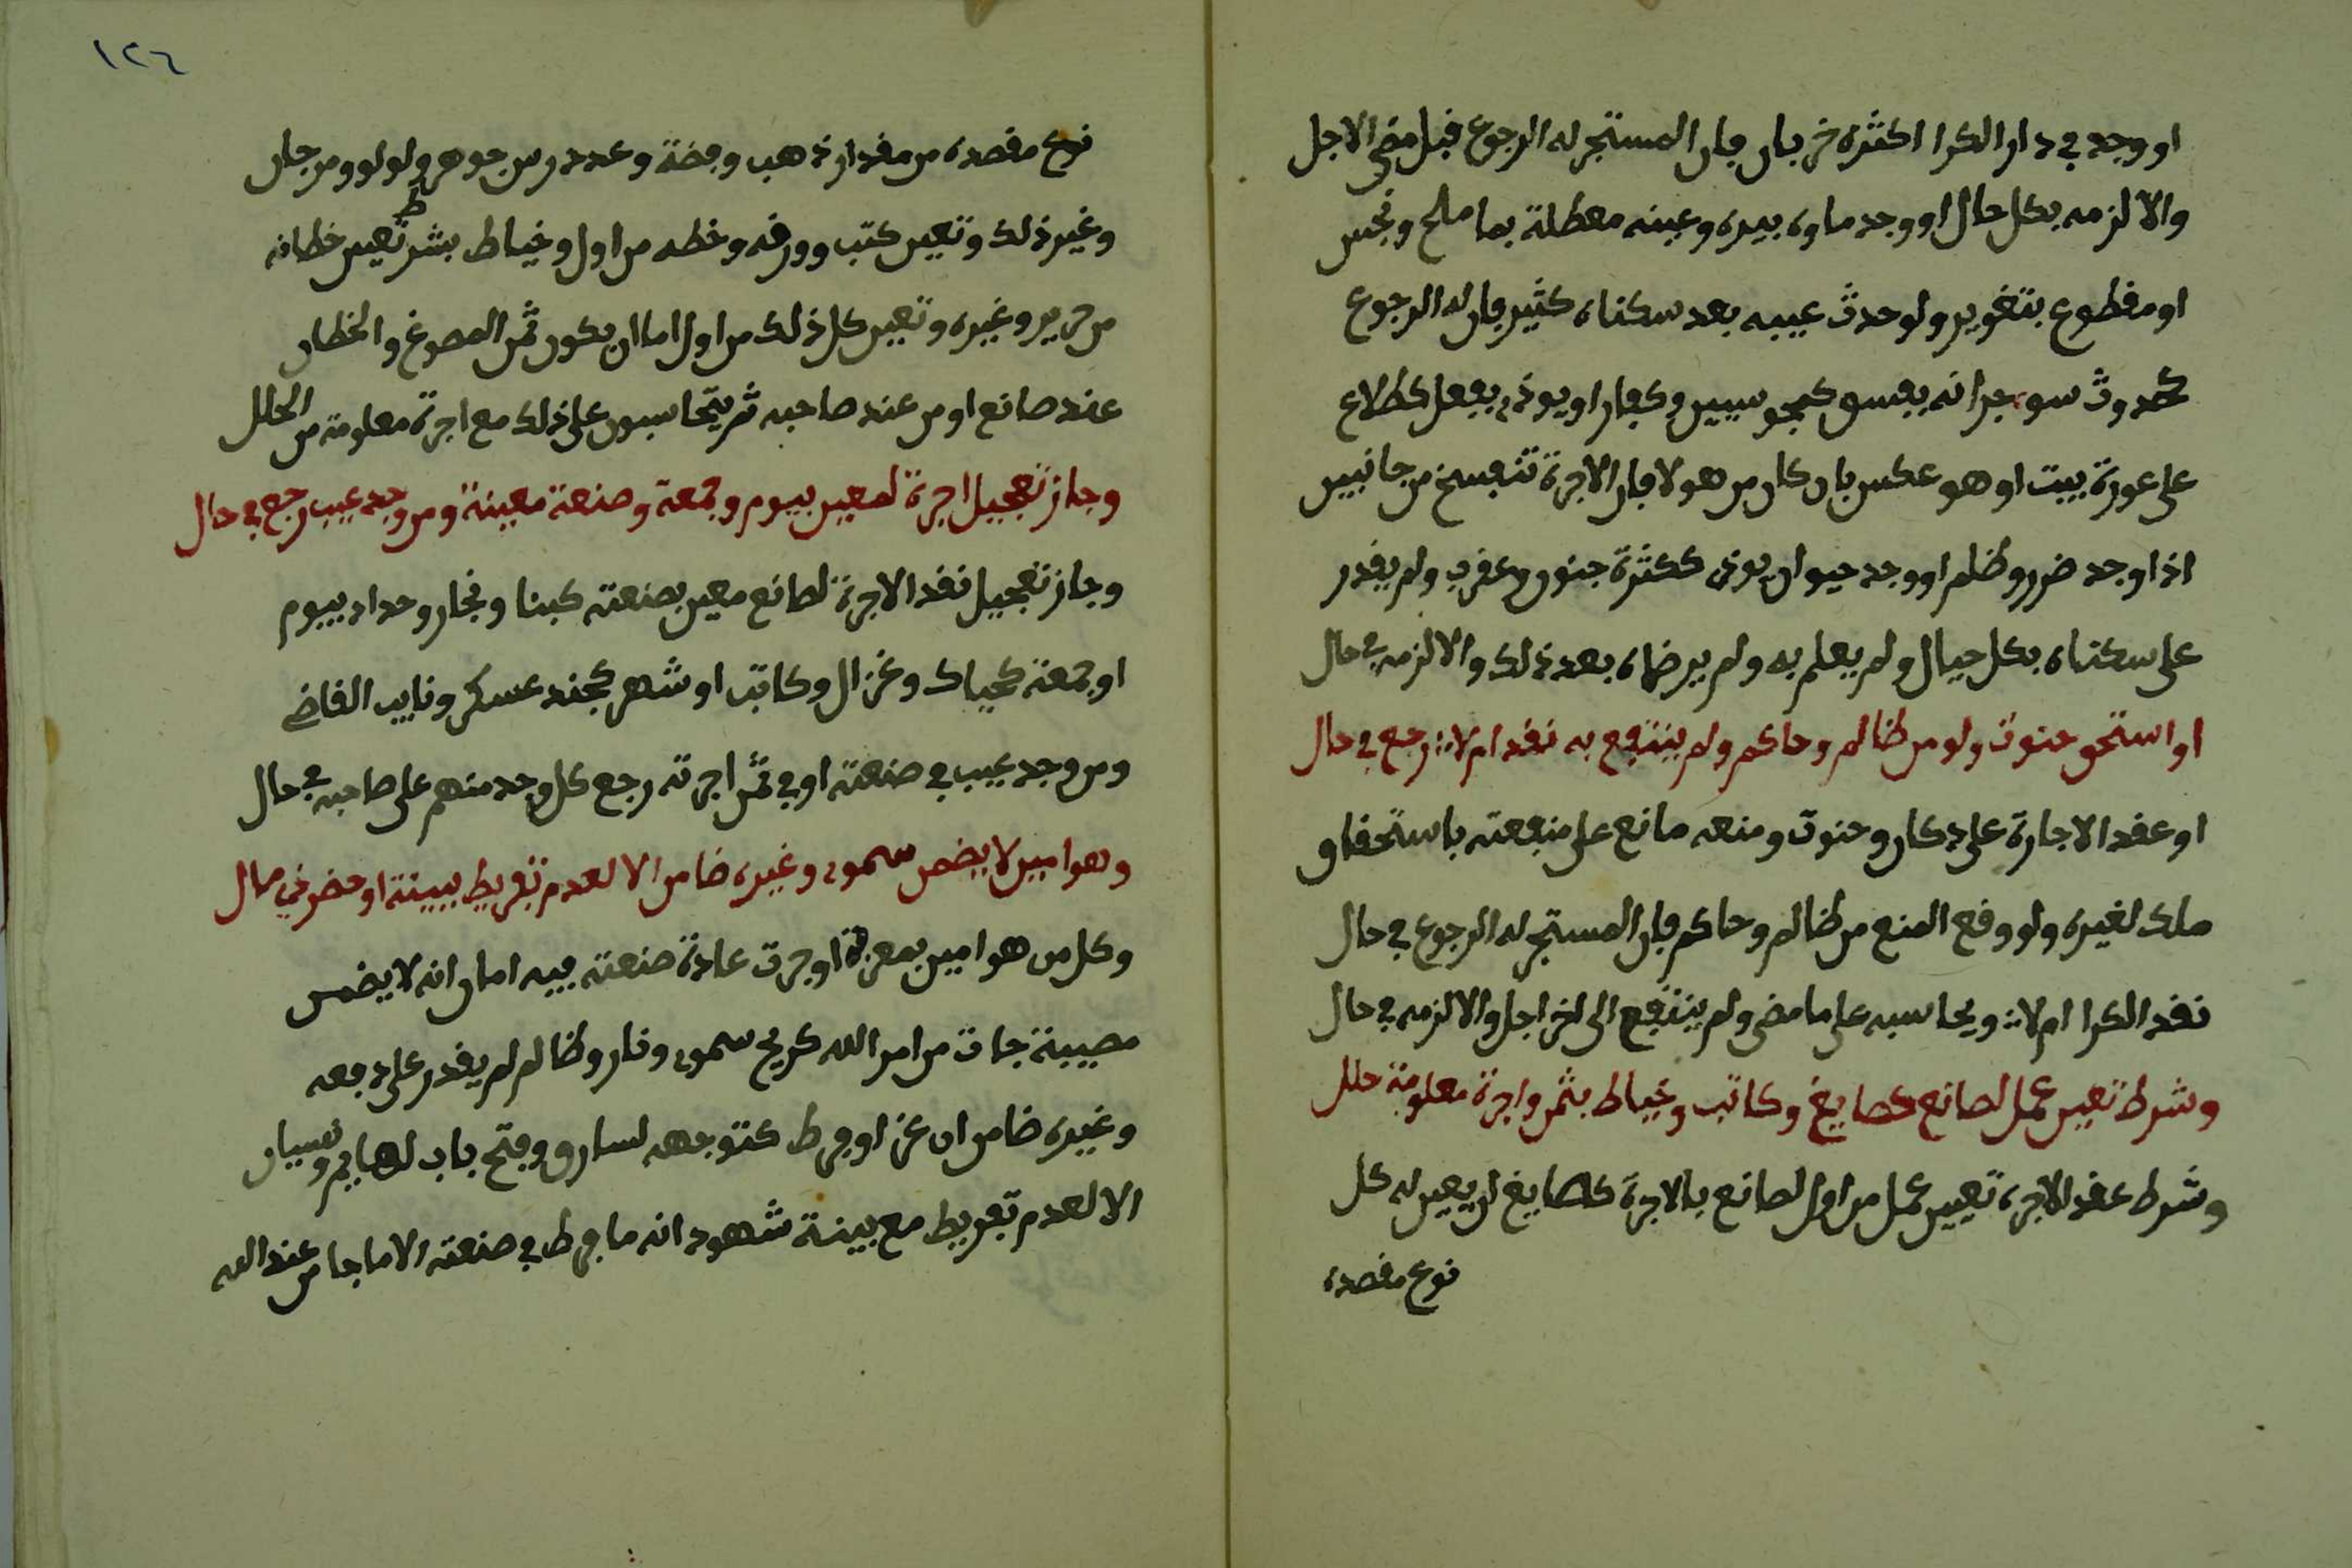 او وجد في دار الكرا اكثره خربان فان المستجر له الرجوع قبل مضي الاجل
والا لزمه بكل حال او وجد ماوه بيره وعينه معطلة بما ملح ونجس
او مقطوع بتغوير ولو حدث عيبه بعد سكناه كثير فان له الرجوع
كحدوث سو جرانه بفسق كمجوسيين وكفار او يوذيه بفعل كطلاع
على عورة بيت او هو عكس بان كان من هولا فان الاجرة تنفسخ من جانبين
اذا وجد ضرر وظلم او وجد حيوان يوذي ككثرة جنون وعقرب ولم يقدر
على سكناه بكل حيال ولم يعلم به ولم يرضاه بعد ذلك والا لزمه في حال
او استحق حنوت ولو من ظالم وحاكم ولم ينتفع به نقد ام لا رجع في حال
او عقد الاجارة على دكان وحنوت ومنعه مانع على منفعته باستحقاق
ملك لغيره ولو وقع المنع من ظالم وحاكم فان المستجر له الرجوع في حال
نقد الكرا ام لا ويحاسبه على ما مضى ولم ينتفع الى اخر اجل والا لزمه في حال
وشرط تعين عمل لصانع كصايغ وكاتب وخياط بثمن واجرة معلومة حلل
وشرط عقد الاجره تعيين عمل من اول لصانع بالاجرة كالصايغ ان يعين له كل
نوع مقصده
١٢٦
نوع مقصده من مقدار ذهب وفضة وعدد من جوهر ولولو ومرجان
وغير ذلك وتعين كتب وورقه وخطه من اول وخياط بشرط تعيين خطانه
من حرير وغيره وتعين كل ذلك من اول اما ان يكون ثمن المصوغ والخطان
عند صانع او من عند صاحبه ثم يتحاسبون على ذلك مع اجرة معلومة من الحلل
وجاز تعجيل اجرة لمعين بيوم وجمعة وصنعة معينة ومن وجد عيب رجع في حال
وجاز تعجيل نقد الاجرة لصانع معين بصنعته كبنا ونجار وحداد بيوم
او جمعة كحياك وغزال وكاتب او شهر كجند عسكر ونايب القاضي
ومن وجد عيب في صنعته او في ثمن اجرته رجع كل وحد منهم على صاحبه في حال
وهو امين لا يضمن سموي وغيره ضامن الا لعدم تفريط ببينة او حضر في حال
وكل من هو امين بمعرفة او جرت عادة صنعته فيه امان انه لا يضمن
مصيبة جات من امر الله كريح سموي ونار وظالم لم يقدر على دفعه
وغيره ضامن ان غر او فرط كتوجهه لسارق وفتح باب لهايم ونسيان
الا لعدم تفريط مع بينة شهود انه ما فرط في صنعته الا ما جا من عند الله